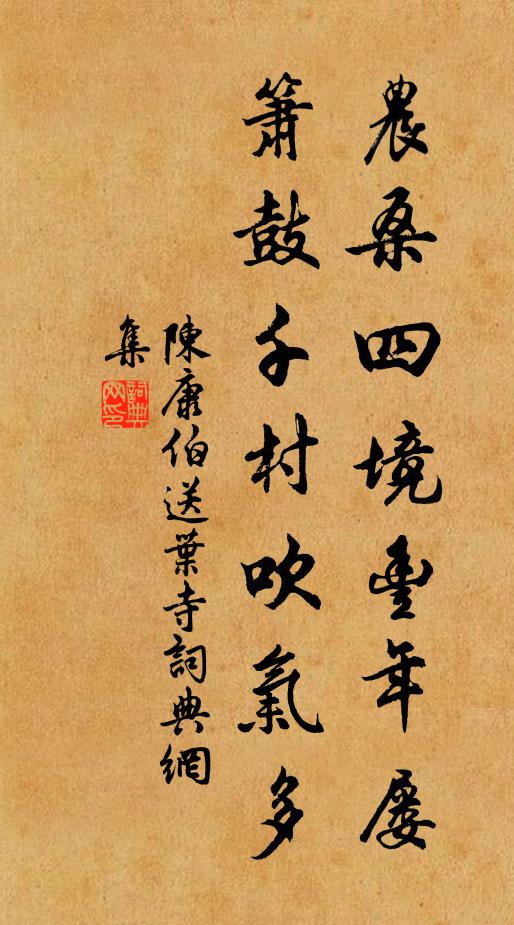 農桑四境豊年屡
簫鼓千村吹氣多
陳康伯送葉寺詞典網
集
詞典網印